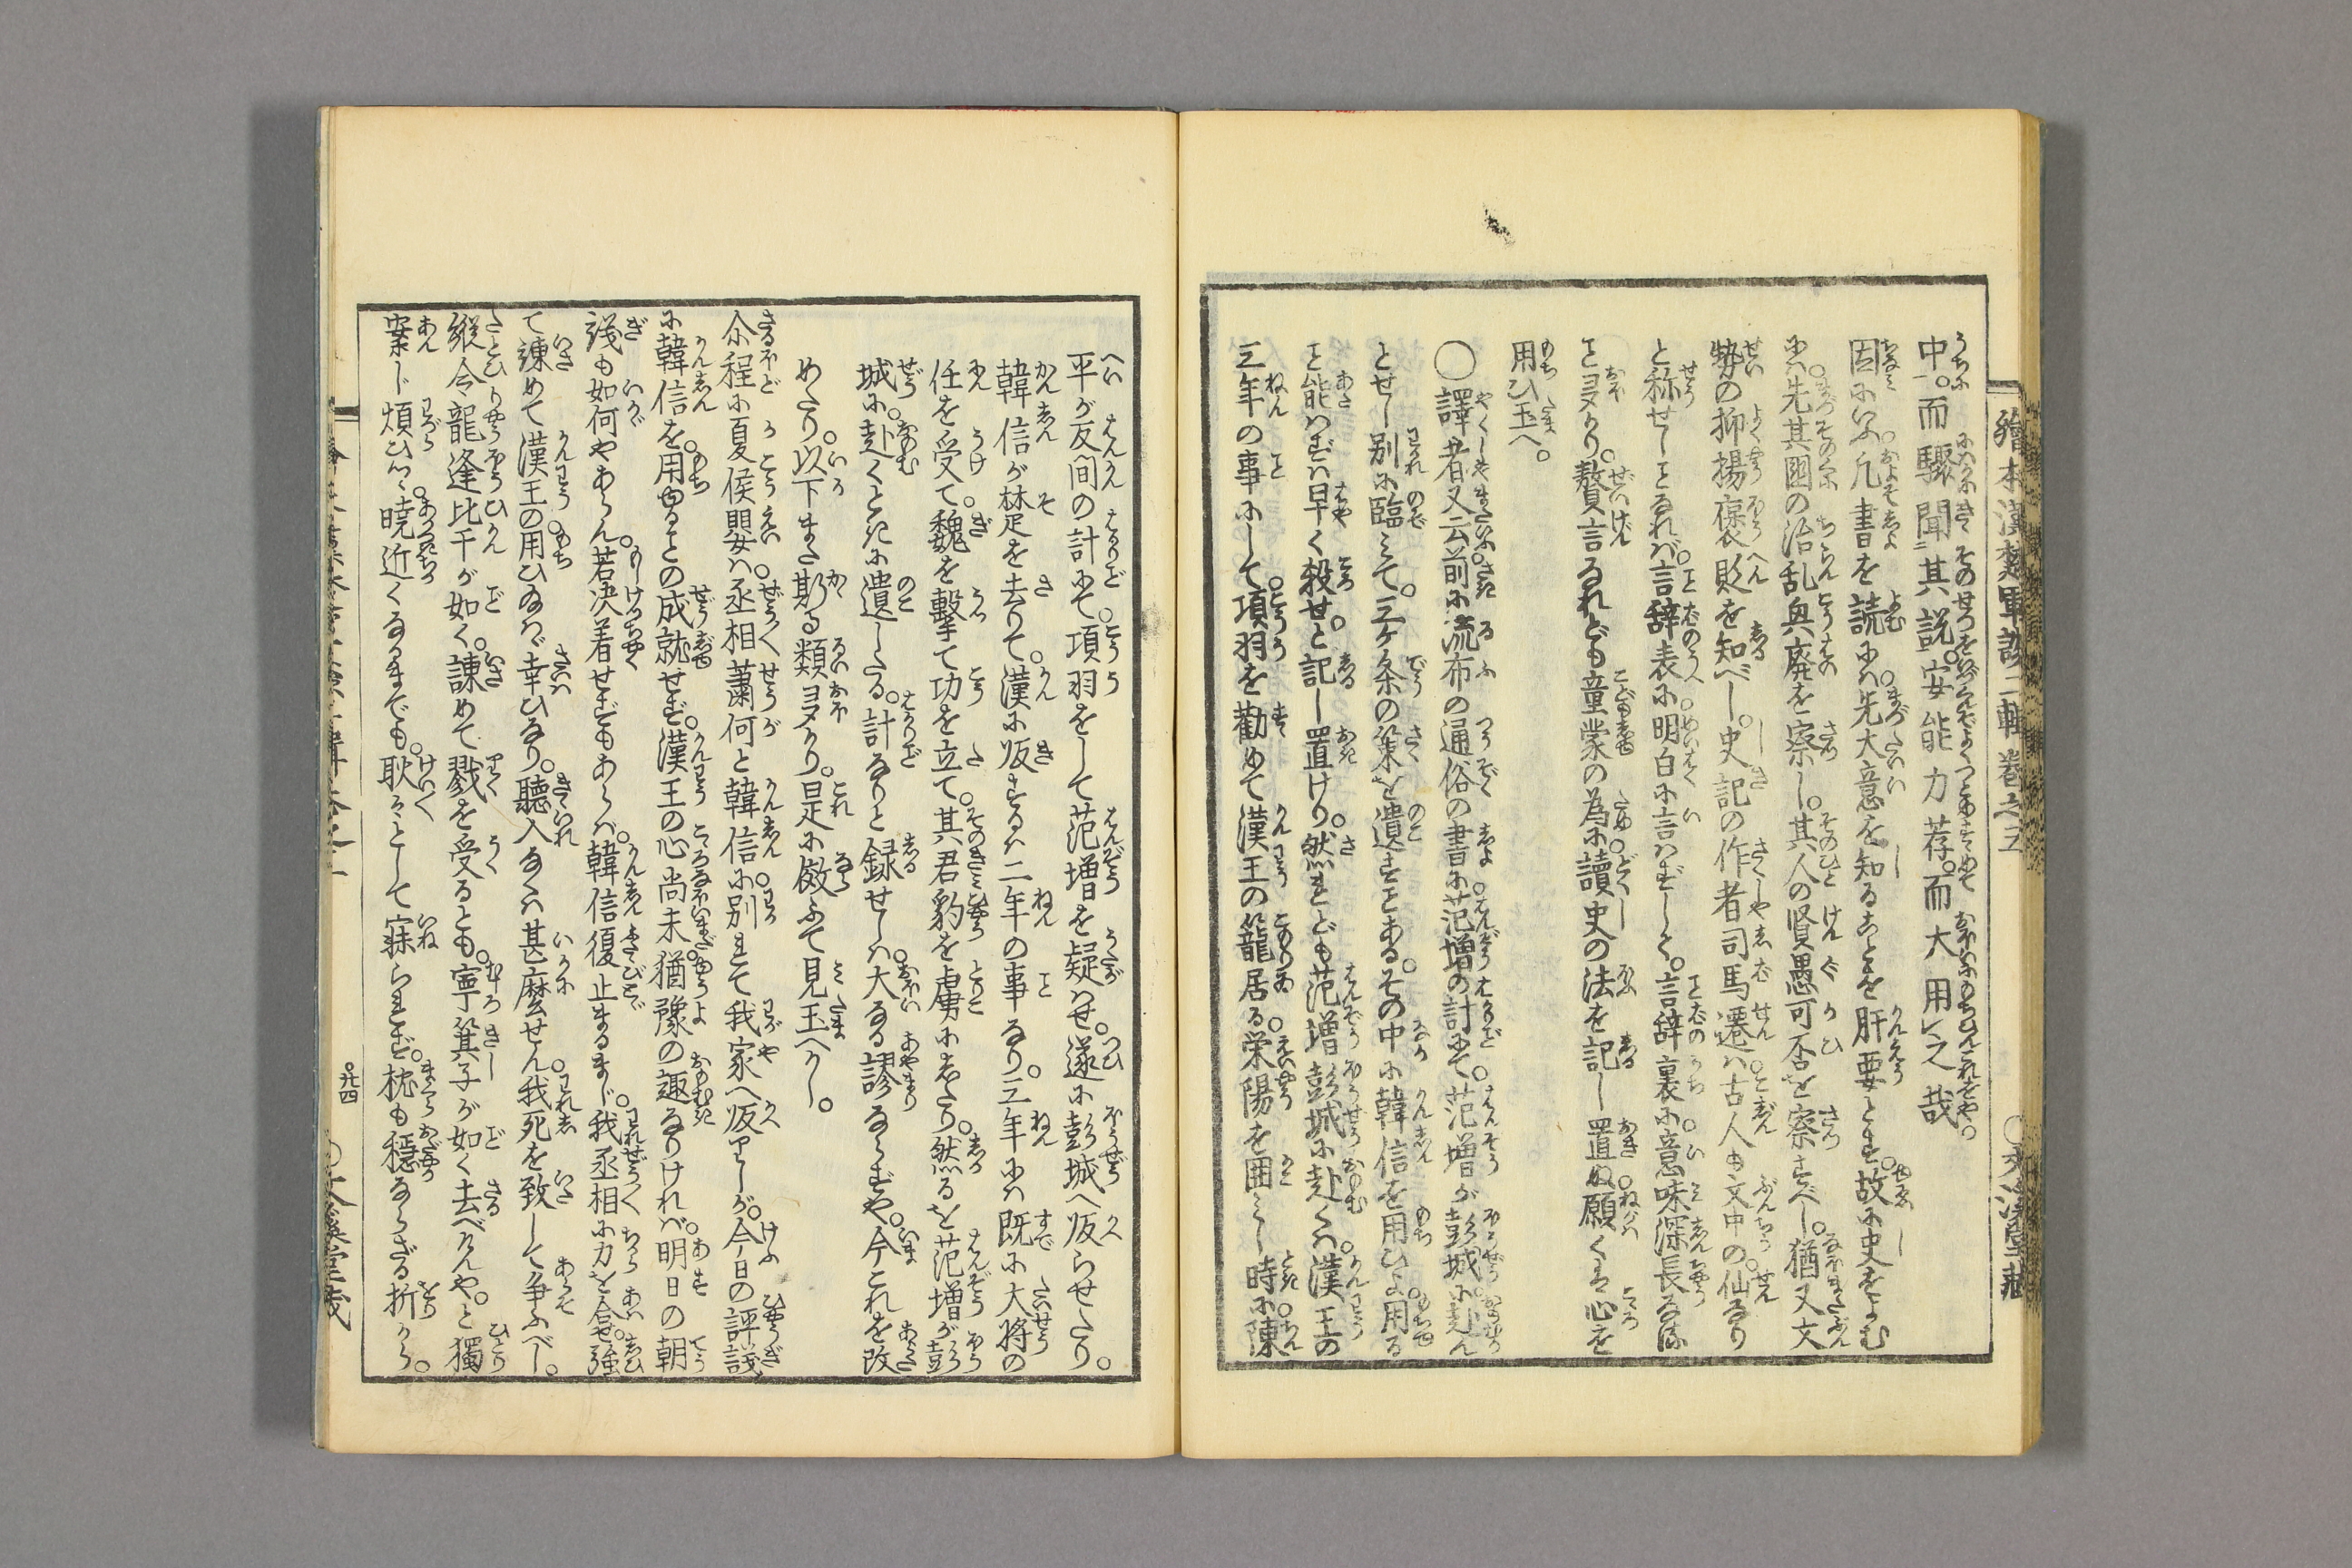 繪本漢楚軍談二輯卷之三
中。而驟聞其說。安能力荐。而大用之哉。
因にいふ。凡書を読には。先大意を知ることを肝要とす。故に史をよむ
には先其国の治乱興廃を察し。其人の賢愚可否を察すべし。猶又文
勢の抑揚褒貶を知べし。史記の作者司馬遷は古人も文中の仙なり
と称せしことなれば。言辞表に明白に言はずして。言辞裏に意味深長なる
こと多かり。贅言なれども童蒙の為に讀史の法を記し置ぬ願くは心を
用ひ玉へ。
○譯者又云前に流布の通俗の書に范増の計にて。范増が彭城に赴ん
とせし別に臨みて。三ケ条の策を遺すことある。その中に韓信を用ひよ用る
こと能はずは早く殺せ。と記し置けり。然れども范増彭城に赴くは。漢王の
三年の事にして。項羽を勧めて漢王の籠居る。栄陽を囲みし時に。陳
平が反間の計にて。項羽をして范増を疑はせ。遂に彭城へ皈らせたり。
韓信が楚を去りて。漢に皈するは二年の事なり。三年には既に大将の
任を受て。魏を擊て功を立て。其君豹を虜にしたり。然るを范増が彭
城に。赴くときに遺したる。計なりと録せしは。大なる謬ならずや。今これを改
めたり。以下また斯る類多かり。是に倣ふて見玉へかし。
尒程に夏侯嬰は。丞相蕭何と韓信に。別れて我家へ皈りしが。今日の評議
に韓信を。用ゆるとの成就せず。漢王の心尚未猶豫の趣なりければ。明日の朝
議も如何やあらん。若決着せずもあらば。韓信復止まるまじ。我丞相に力を合せ。強
て諌めて漢王の用ひあはゞ幸ひなり。聽入あらは甚麼せん。我死を致して争ふべし。
縦令龍逢比干が如く。諌めて戮を受るとも。寧箕子が如く去べけんや。と獨
案じ煩ひつゝ。暁近くなるまでも。耿々として寐られず。枕も穏ならざる折から。
○廿四